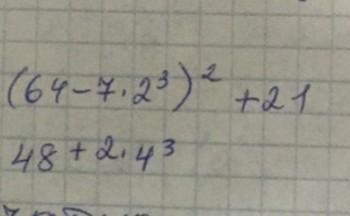 (64-7·2³)² +21
48+2·4³